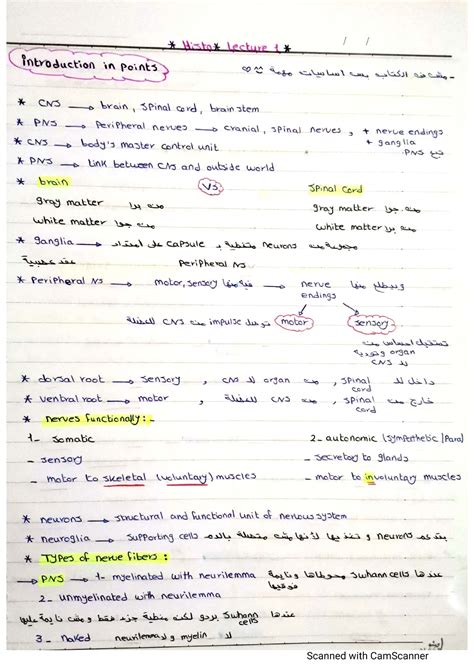 * Histo * Lecture 1 *
/ /
introduction in points
- مش فى الكتاب بس اساسيات مهمة
* CNS → brain, spinal cord, brain stem
* PNS → Peripheral nerves → cranial, spinal nerves, + nerve endings
+ ganglia
تبع PNS
* CNS → body's master control unit
* PNS → Link between CNS and outside world
* brain VS spinal cord
gray matter من برا gray matter من جوا
white matter من جوا white matter من برا
* ganglia → مجموعة من neurons متغطية بـ capsule على امتداد
Peripheral Ns. عقد عصبية
* Peripheral Ns → motor, sensory فيه منها → nerve endings وبيطلع منها
motor توصل impulse من CNS للعضلة
sensory
تستقبل احساس من
organ وتوديه
لـ CNS
* dorsal root → sensory , من organ لـ CNS , spinal cord داخل لـ
* ventral root → motor , من CNS للعضلة , spinal cord خارج من
* nerves functionally :-
1- Somatic 2- autonomic (sympathetic | Para)
- sensory - secretory to glands
- motor to skeletal (voluntary) muscles - motor to involuntary muscles
* neurons → structural and functional unit of nervous system
* neuroglia → supporting cells بتدعم neurons و تغذيها لأنها مش متصلة بالدم
* Types of nerve fibers :
→ PNS → 1- myelinated with neurilemma
عندها Schwann cells محوطاها و نايمة فوقيها
2- unmyelinated with neurilemma
عندها Schwann cells بردو لكنه مغطية جزء فقط و مش نايمة عليها
3- naked لا myelin ولا neurilemma
Scanned with CamScanner